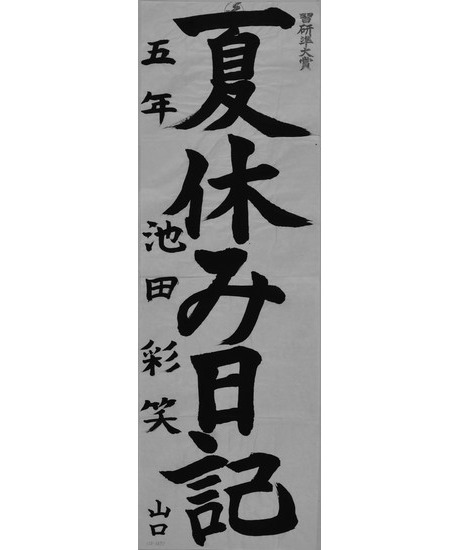 習研準大賞
夏休み日記
五年 池田彩笑 山口